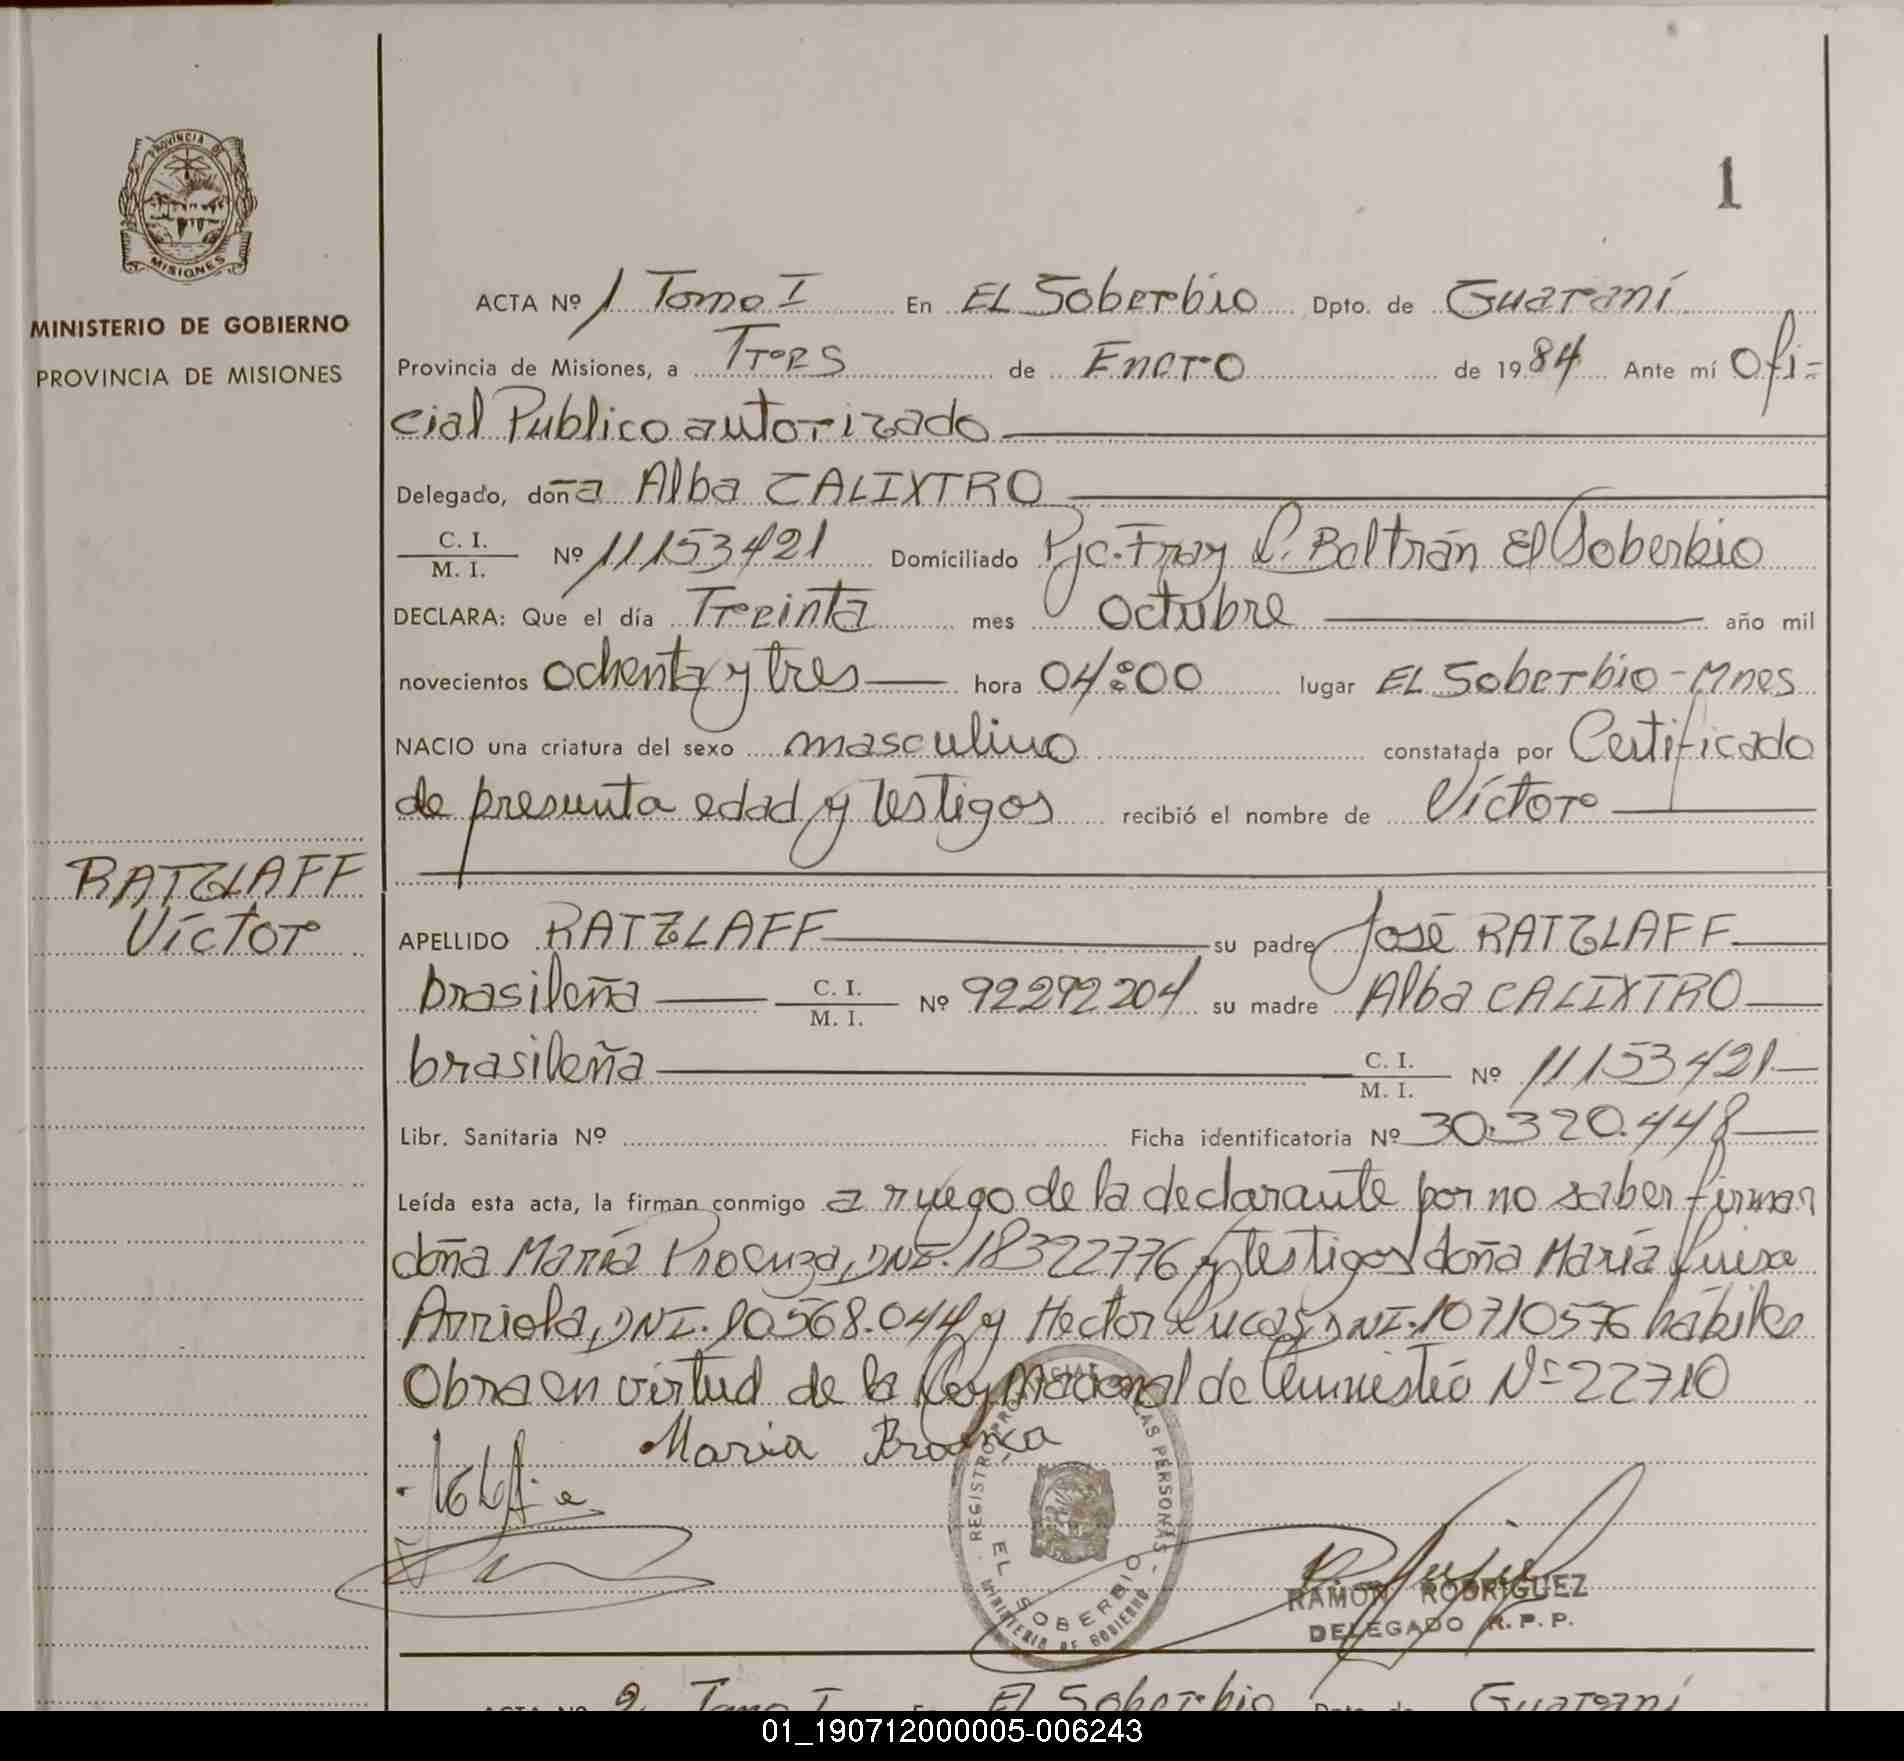 PROVINCIA DE
MISIONES
MINISTERIO DE GOBIERNO
PROVINCIA DE MISIONES
1
ACTA Nº 1 Tomo I En EL Soberbio Dpto. de Guaraní
Provincia de Misiones, a Tres de Enero de 1984 Ante mí Ofi-
cial Publico autorizado
Delegado, doña Alba CALIXTRO
C. I.
M. I. Nº 11153421 Domiciliado Pje. Fray L. Beltrán El Soberbio
DECLARA: Que el día Treinta mes octubre año mil
novecientos ochenta y tres hora 04:00 lugar EL Soberbio-Mnes
NACIO una criatura del sexo masculino constatada por Certificado
de presunta edad y testigos recibió el nombre de Víctor
RATZLAFF
Víctor
APELLIDO RATZLAFF su padre José RATZLAFF
brasileña C. I.
M. I. Nº 92292204 su madre Alba CALIXTRO
brasileña C. I.
M. I. Nº 11153421
Libr. Sanitaria Nº Ficha identificatoria Nº 30.320.448
Leída esta acta, la firman conmigo a ruego de la declarante por no saber firmar
doña María DNI. 18322776 y testigos doña María Luisa
Arriola, DNI. 10568.044 y Hector Lucas, DNI. 10710576 hábiles
Obra en virtud de la Ley Nacional de Nº 22710
Maria
REGISTRO LAS PERSONAS
EL SOBERBIO
MINISTERIO DE GOBIERNO
RAMON RODRIGUEZ
DELEGADO R. P. P.
ACTA Nº 2 Tomo I En El Soberbio Dpto. de Guaraní
01_190712000005-006243